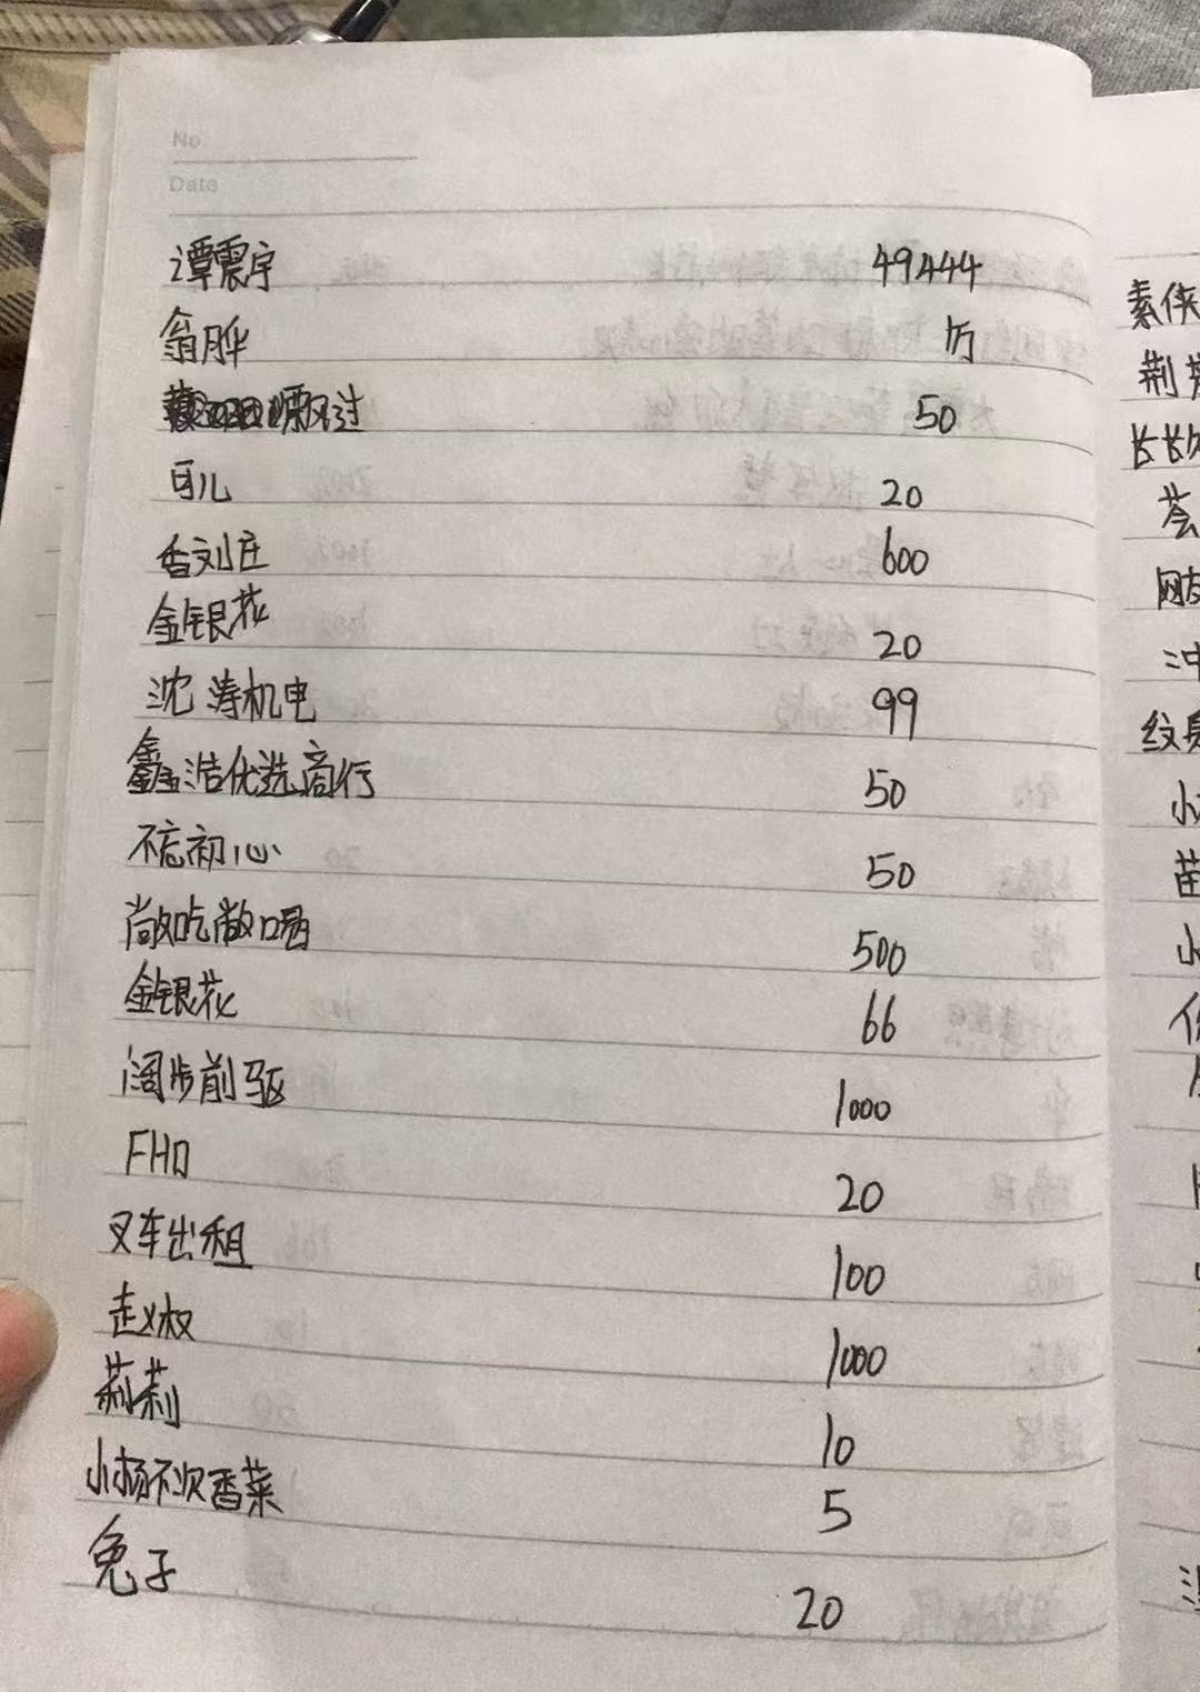 No.
Date
谭震宇 49444
翁月华 1万
飘过 50
可儿 20
香刘庄 600
金银花 20
沈涛机电 99
鑫浩优选商行 50
不忘初心 50
敞吃敞喝 500
金银花 66
阔步前驱 1000
FHD 20
叉车出租 100
赵叔 1000
莉莉 10
小杨不次香菜 5
兔子 20
素侠
荆
长长
荟
网友
冲
纹身
小
苗
小